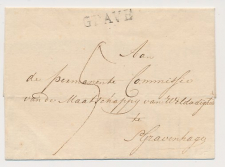 GRAVE
Aan
de permanente Committee
van de Maatschappy van Weldadigheid
te
s'Gravenhage